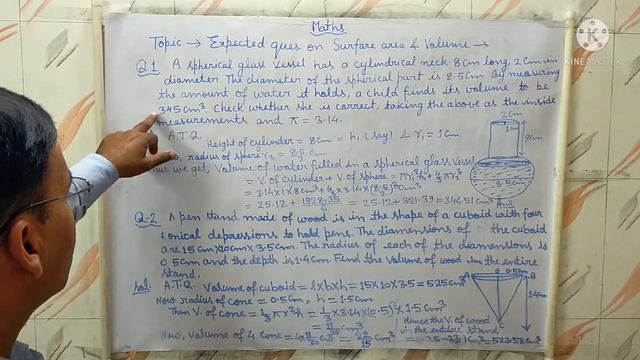 Maths
Topic → Expected ques on Surface area & Volume →
Q.1 A spherical glass vessel has a cylindrical neck 8cm long, 2cm in
diameter. The diameter of the spherical part is 8.5cm. By measuring
the amount of water it holds, a child finds its volume to be
345cm³. Check whether she is correct, taking the above as the inside
measurements and π = 3.14.
A.T.Q.
Height of cylinder = 8cm = h, (say) & r₁ = 1cm
radius of sphere r₂ = 8.5/2 cm
we get, Volume of water filled in a spherical glass vessel
= V. of cylinder + V. of sphere = πr₁²h + 4/3πr₂³
= 3.14×1×8cm³ + 4/3×3.14×(8.5/2)³cm³
= 25.12 + 1928.35/6 = 25.12 + 321.39 = 346.51cm³ Ans
2cm
1cm
8cm
8.5cm
Q-2 A pen stand made of wood is in the shape of a cuboid with four
conical depressions to hold pens. The diamensions of the cuboid
are 15cm×10cm×3.5cm. The radius of each of the diamensions is
0.5cm and the depth is 1.4cm. Find the volume of wood in the entire
stand.
Sol. A.T.Q. Volume of cuboid = l×b×h = 15×10×3.5 = 525cm³
Now radius of cone = 0.5cm, h = 1.5cm
Then V. of cone = 1/3πr²h = 1/3×3.14×(0.5)²×1.5cm³
= 11/30 cm³
Now, Volume of 4 cone = 4×11/30 cm³ = 22/15 cm³
Hence the V. of wood
in the entire stand
cm³ = 523.53cm³
0.5cm B
1.4cm
KINEMASTER